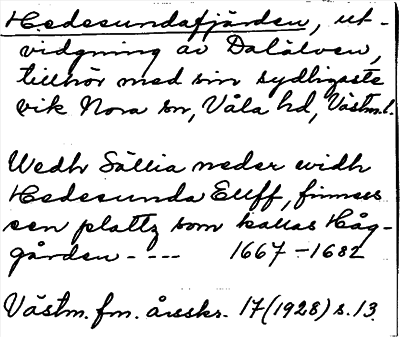 Hedesundafjärden, ut-
vidgning av Dalälven,
tillhör med sin sydligaste
vik Nora sn, Våla hd, Västm.l.
Wedh Sällia neder widh
Hedesunda Elff, finnes
een plattz som kallas Håg-
gården - - - - 1667-1682
Västm. fm. årsskr. 17(1928) s. 13.